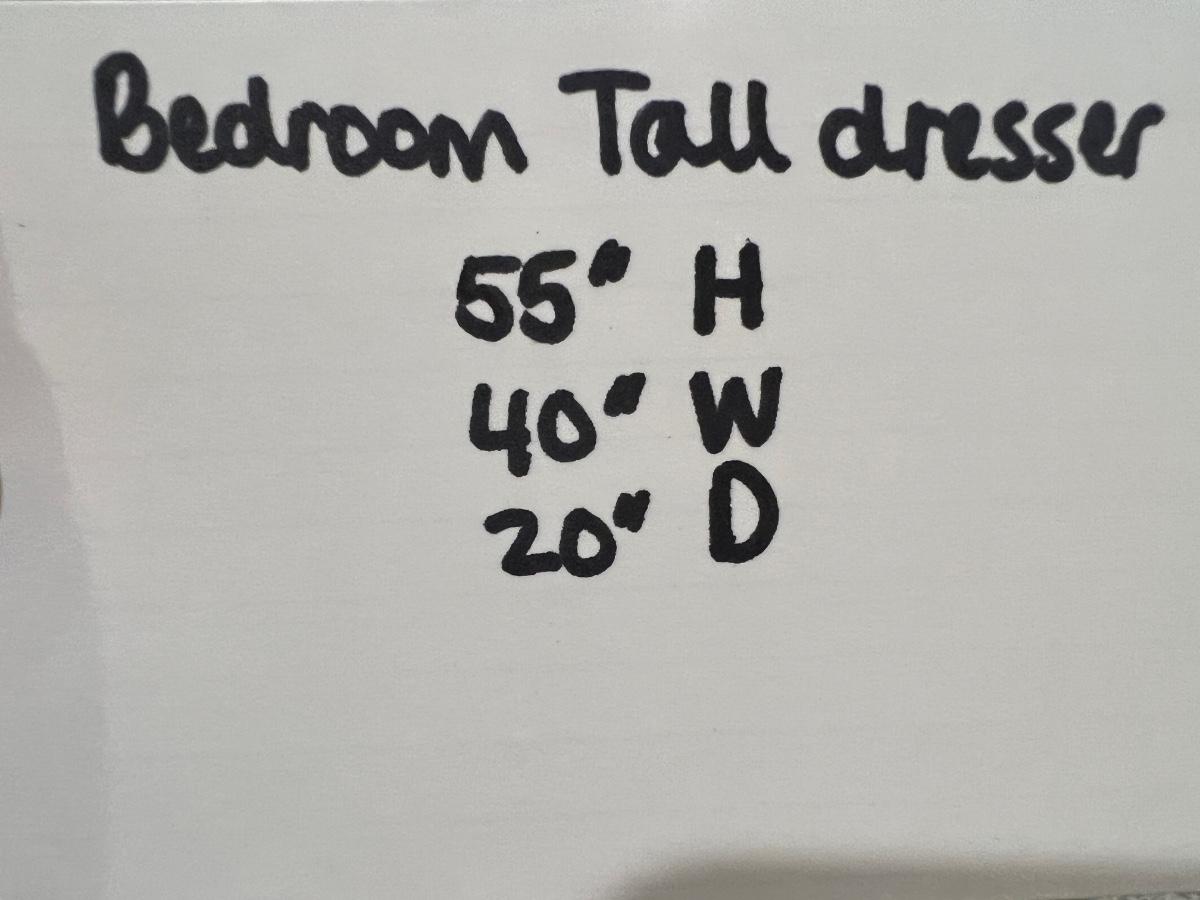 Bedroom Tall dresser
55" H
40" W
20" D